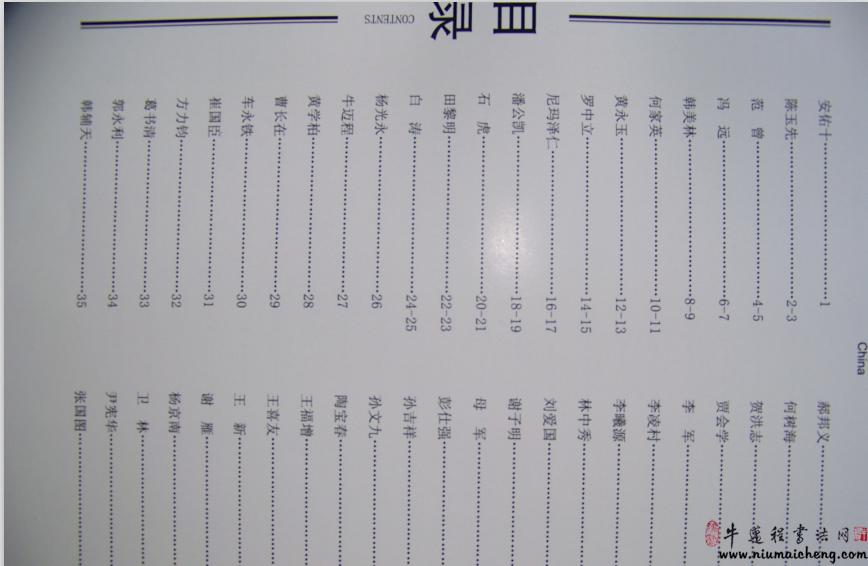 目录
CONTENTS
安佑十 1
陈玉先 2-3
范 曾 4-5
冯 远 6-7
韩美林 8-9
何家英 10-11
黄永玉 12-13
罗中立 14-15
尼玛泽仁 16-17
潘公凯 18-19
石 虎 20-21
田黎明 22-23
白 涛 24-25
杨光永 26
牛迈程 27
黄学柏 28
曹长在 29
车永铁 30
崔国臣 31
方力钧 32
葛书清 33
郭永利 34
韩辅天 35
郝邦义
何树海
贺洪志
贾会学
李 军
李凌村
李曦源
林中秀
刘爱国
谢子明
母 军
彭仕强
孙吉祥
孙文九
陶宝春
王福增
王喜友
王 新
谢 雁
杨京南
卫 林
尹宪华
张国图
China
牛蓬程书法网
www.niumaicheng.com